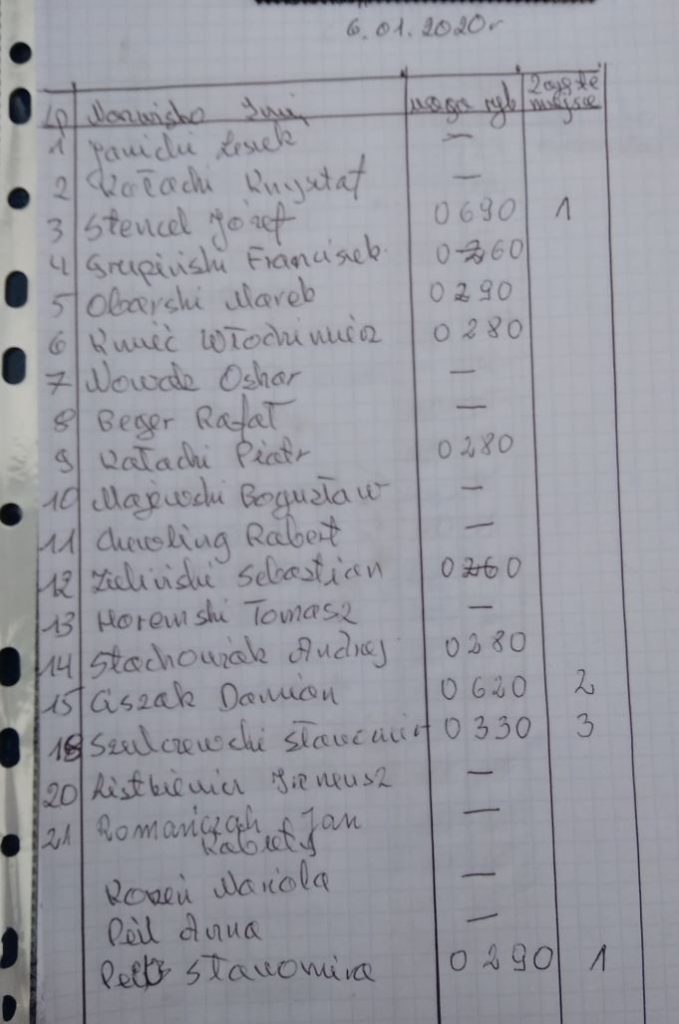 6.01.2020r
Lp Nazwisko Imię waga ryb Zajęte miejsce
1 Janicki Leszek —
2 Kałacki Krysztaf —
3 Stencel Józef 0690 1
4 Grupiński Franciszek 0260
5 Obarski Marek 0290
6 Kmieć Włodzimierz 0280
7 Nowak Oskar —
8 Beger Rafał —
9 Kałacki Piotr 0280
10 Majewski Bogusław —
11 Robert —
12 Zieliński Sebastian 0260
13 Horemski Tomasz —
14 Stachowiak Andrzej 0280
15 Ciszak Damian 0620 2
18 Szulczewski Sławomir 0330 3
20 Ireneusz —
21 Romańczak Jan —
Kobiety
Rozeń Mariola —
Peil Anna —
Sławomira 0290 1